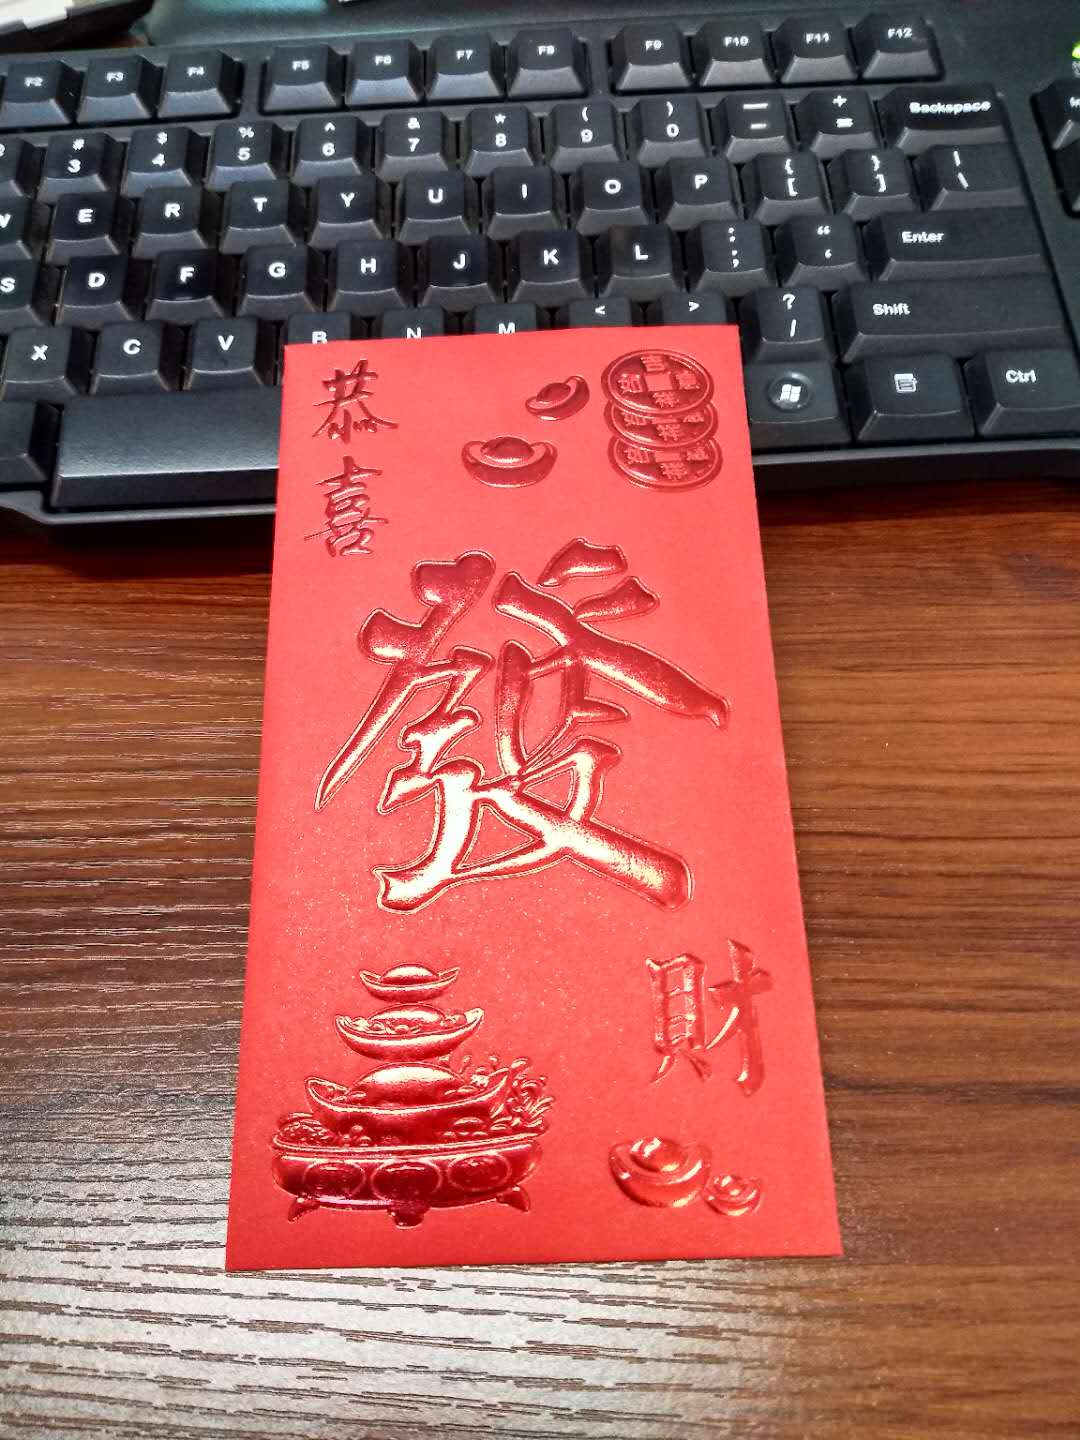 F2 F3 F4 F5 F6 F7 F8 F9 F10 F11 F12
# 3 $ 4 % 5 ^ 6 & 7 * 8 ( 9 ) 0 — - + = Backspace
E R T Y U I O P { [ } ] | \
S D F G H J K L : ; “ ‘ Enter
X C V B N M < > ? / Shift
Ctrl
恭
喜
發
財
吉
如 意
祥
如 意
祥
如 意
祥